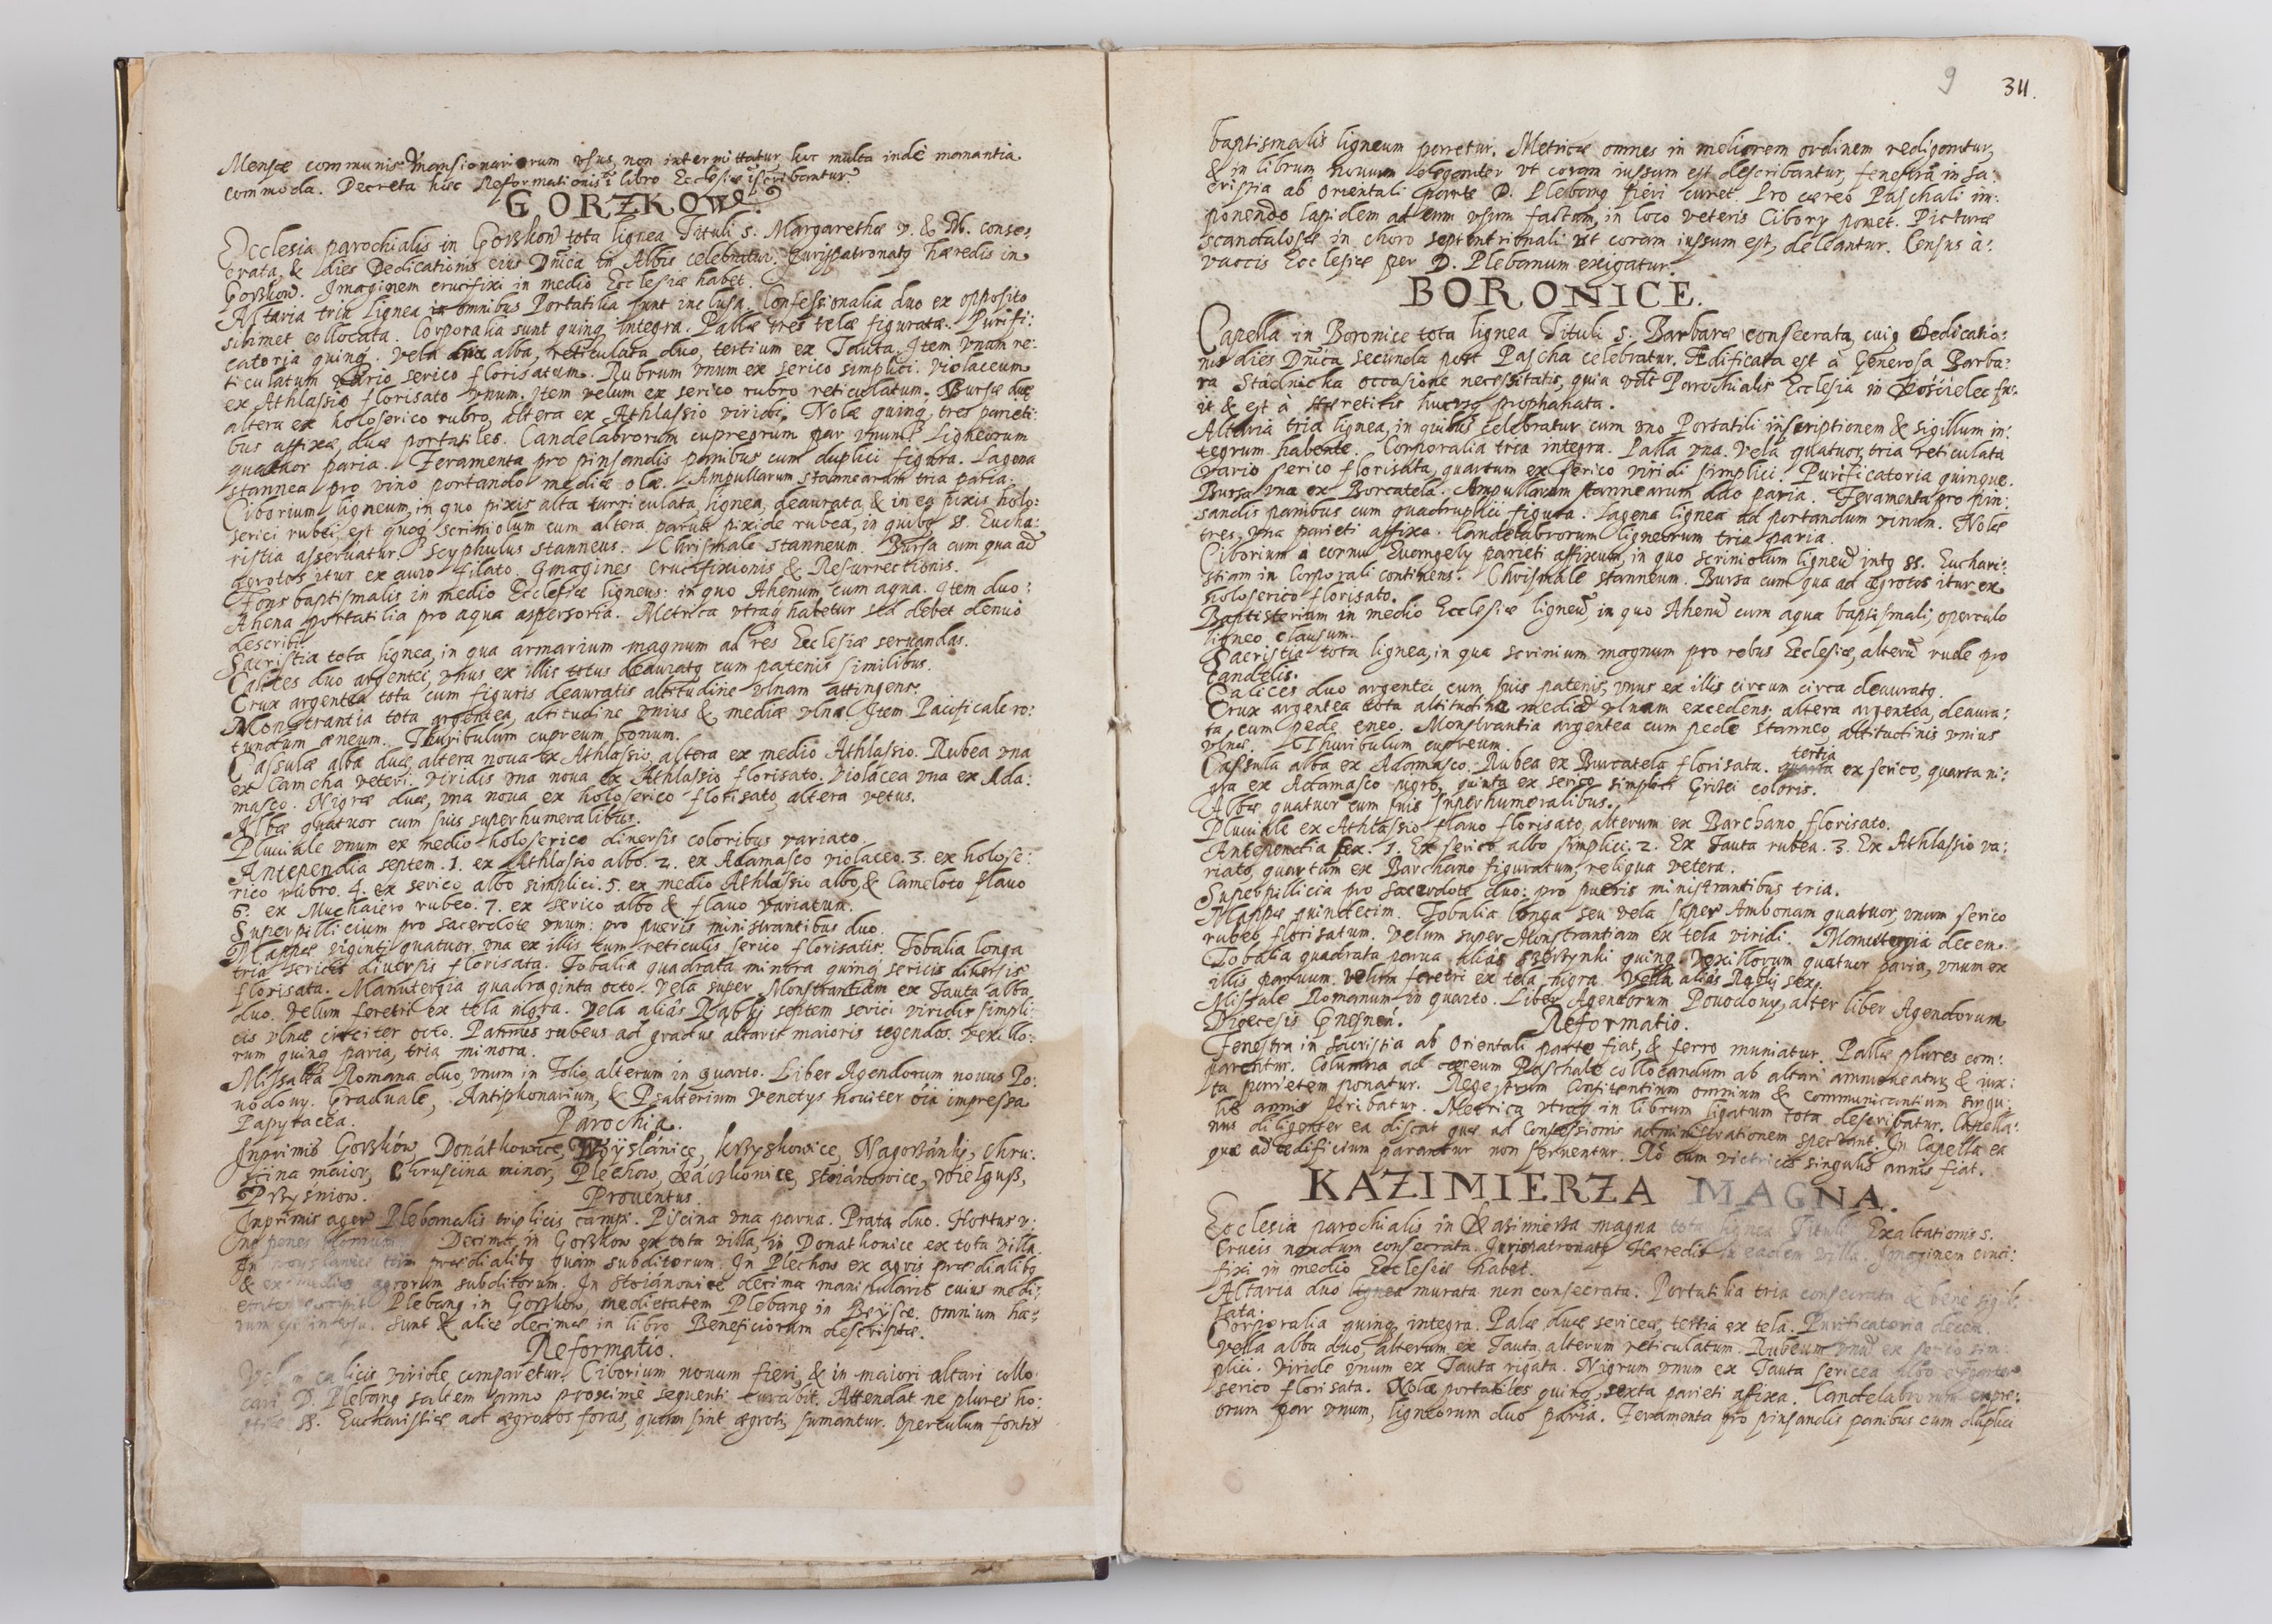 Mensæ communis Mansionariorum vsus, non intermittatur, huc multa inde manantia
commoda. Decreta hæc Reformationis ĩ libro Ecclesiæ ĩscribantur.
GORZKOW.
Ecclesia parochialis in Gorzkow tota lignea Tituli S. Margarethæ V. & M. conse:
crata, & dies Dedicationis eius Dnica in Albis celebratur. Jurispatronatq Hæredis in
Gorzkow. Imaginem crucifixi in medio Ecclesiæ habet.
Altaria tria lignea in omnibus Portatilia sunt inclusa. Confessionalia duo ex opposito
sibimet collocata. Corporalia sunt quinq integra. Pallæ tres telæ figuratæ. Purifi:
catoria quinq. Vela tria alba, reticulata duo, tertium ex Tauta. Item vnum re:
ticulatum vario serico florisatum. Rubrum vnum ex serico simplici. Violaceum
ex Athlassio florisato vnum. Item velum ex serico rubro reticulatum. Bursæ duæ
altera ex holoserico rubro, altera ex Athlassio viridi. Nolæ quinq, tres parieti:
bus affixæ, duæ portatiles. Candelabrorum cupreorum par vnum. Ligneorum
quatuor paria. Feramenta pro pinsandis panibus cum duplici figura. Lagena
stannea pro vino portando mediæ olæ. Ampullarum stannearum tria paria.
Ciborium ligneum, in quo pixis alta turriculata, lignea, deaurata, & in ea pixis holo:
serici rubei, est quoq scriniolum cum altera parua pixide rubea, in quibq S. Eucha:
ristia asseruatur. Scyphulus stanneus. Chrismale stanneum. Bursa cum qua ad
ægrotos itur ex auro filato. Imagines Crucifixionis & Resurrectionis.
Fons baptismalis in medio Ecclesiæ ligneus: in quo Ahenum cum aqua. Item duo:
Ahena portatilia pro aqua aspersoria. Metrica vtraq habetur sed debet denuo
describi.
Sacristia tota lignea, in qua armarium magnum ad res Ecclesiæ seruandas.
Calices duo argentei, vnus ex illis totus deauratq cum patenis similibus.
Crux argentea tota cum figuris deauratis altitudine vlnam attingens.
Monstrantia tota argentea, altitudine vnius & mediæ vlnæ. Item Pacificale ro:
tundum æneum. Thuribulum cupreum bonum.
Cassulæ albæ duæ, altera noua ex Athlassio, altera ex medio Athlassio. Rubea vna
ex Camcha veteri. Viridis vna noua ex Athlassio florisato. Violacea vna ex Ada:
masco. Nigræ duæ, vna noua ex holoserico florisato, altera vetus.
Albæ quatuor cum suis superhumeralibus.
Pluuiale vnum ex medio holoserico diuersis coloribus variato.
Antependia septem. 1. ex Athlassio albo. 2. ex Adamasco violaceo. 3. ex holose:
rico rubro. 4. ex serico albo simplici. 5. ex medio Athlassio albo, & Cameloto flauo
6. ex Muchaiero rubeo. 7. ex serico albo & flauo variatum.
Superpillicium pro sacerdote vnum: pro pueris ministrantibus duo.
Mappæ viginti quatuor, vna ex illis cum reticulis serico florisatis. Tobalia longa
tria sericis diuersis florisata. Tobalia quadrata minora quinq sericis diuersis
florisata. Manutergia quadraginta octo. Vela super Monstrantiam ex Tauta alba
duo. Velum feretri ex tela nigra. Vela alias Rąbki septem serici viridis simpli:
cis vlnæ circiter octo. Pannus rubeus ad gradus altaris maioris tegendos. Vexillo:
rum quinq paria, tria minora.
Missalia Romana duo, vnum in Folio, alterum in quarto. Liber Agendorum nouus Po:
uodouy. Graduale, Antiphonarium, & Psalterium Venetys nouiter oia impressa
Papyracea.
Parochia.
Inprimis Gorzków, Donátkowice, Woysłánice, Krzyszkowice, Nagorzánki, Chru:
scina maior, Chruścina minor, Plechow, Káczkowice, Stoiánowice, Wielgusz,
Przysniow.
Prouentus.
Inprimis ager Plebanalis triplicis campi. Piscina vna parua. Prata duo. Hortus v:
nq penes Decima in Gorzkow ex tota villa, in Donatkouice ex tota villa
In tam prædialibq quam subditorum. In Plechow ex agris prædialibq
& ex medio agrorum subditorum. In Stoiánouice decima manipularis cuius medi:
etatem Plebanq in Gorzkow, medietatem Plebanq in Brzysce. Omnium ha:
rum Sunt & aliæ decimæ in libro Beneficiorum descriptæ.
Reformatio.
calicis viride comparetur. Ciborium nouum fieri, & in maiori altari collo
cari D. Plebanq saltem anno proxime sequenti curabit. Attendat ne plures ho:
SS. Eucharistiæ ad ægrotos foras, quam sint ægroti, sumantur. Operculum fontis
9
34.
baptismalis ligneum paretur. Metricæ omnes in meliorem ordinem redigantur,
& in librum nouum eleganter vt coram iussum est describantur, fenestra in Sa:
cristia ab Orientali parte D. Plebanq fieri curet. Pro cereo Paschali im:
ponendo lapidem ad eum vsum factum, in loco veteris Cibory ponet. Picturæ
scandalosæ in choro septentrionali vt coram iussum est, deleantur. Census à:
vaccis Ecclesiæ per D. Plebanum exigatur.
BORONICE.
Capella in Boronice tota lignea Tituli S. Barbaræ consecrata, cuiq Dedicatio:
nis dies Dnica secunda post Pascha celebratur. Ædificata est à Generosa Barba:
ra Stadnicka occasione necessitatis, quia Parochialis Ecclesia in Kościelec fu:
it & est à Hæreticis hucusq prophanata.
Altaria tria lignea, in quibus celebratur cum vno Portatili inscriptionem & sigillum in:
tegrum habente. Corporalia tria integra. Palla vna. Vela quatuor, tria reticulata
vario serico florisata, quartum ex serico viridi simplici. Purificatoria quinque.
Bursa vna ex Borcatela. Ampullarum stannearum duo paria. Feramenta pro pin:
sandis panibus cum quadruplici figura. Lagena lignea ad portandum vinum. Nolæ
tres, vna parieti affixa. Candelabrorum ligneorum tria paria.
Ciborium a cornu Euangely parieti affixum, in quo scriniolum ligneũ intq SS. Euchari:
stiam in Corporali continens. Chrismale stanneum. Bursa cum qua ad ægrotos itur ex
holoserico florisato.
Baptisterium in medio Ecclesiæ ligneũ, in quo Ahenũ cum aqua baptismali, operculo
ligneo clausum.
Sacristia tota lignea, in qua scrinium magnum pro rebus Ecclesiæ, alterũ rude pro
candelis.
Calices duo argentei cum suis patenis, vnus ex illis circum circa deauratq.
Crux argentea tota altitudine mediã vlnam excedens: altera argentea, deaura:
ta, cum pede eneo. Monstrantia argentea cum pede stanneo, altitudinis vnius
vlnæ. Thuribulum cupreum.
Cassula alba ex Adamasco. Rubea ex Burcatela florisata. tertia ex serico, quarta ni:
gra ex Adamasco nigro, quinta ex serico simplici Grisei coloris.
Albæ quatuor cum suis superhumeralibus.
Pluuiale ex Athlassio flauo florisato, alterum ex Barchano florisato.
Antependia sex. 1. Ex serico albo simplici. 2. Ex Tauta rubea. 3. Ex Athlassio va:
riato, quartum ex Barchano figuratum, reliqua vetera.
Superpillicia pro sacerdote duo: pro pueris ministrantibus tria.
Mappæ quindecim. Tobalia longa seu vela super Ambonam quatuor, vnum serico
rubeo florisatum. Velum super Monstrantiam ex tela viridi. Manutergia decem.
Tobalia quadrata parua alias quinq. Vexillorum quatuor paria, vnum ex
illis paruum. Velum feretri ex tela nigra. Vella alias Rąbki sex.
Missale Romanum in quarto. Liber Agendorum Pouodouy, alter liber Agendorum
Diœcesis Gnesnen.
Reformatio.
Fenestra in sacristia ab Orientali parte fiat, & ferro muniatur. Pallæ plures com:
parentur. Columna ad cereum Paschale collocandum ab altari ammoueatur, & iux:
ta parietem ponatur. Regestrum Confitentium omnium & communicantium singu:
lis annis scribatur. Metrica vtraq in librum ligatum tota describatur. Capella:
nus diligenter ea discat quæ ad Confessionis administrationem spectant. In Capella ea
quæ ad ædificium parantur non seruentur. Rõ cum victricis singulis annis fiat.
KAZIMIERZA MAGNA.
Ecclesia parochialis in Kazimierza magna tota lignea Tituli Exaltationis S.
Crucis nondum consecrata. Jurispatronatq Hæredis in eadem villa. Imaginem cruci:
fixi in medio Ecclesiæ habet.
Altaria duo lignea murata non consecrata. Portatilia tria consecrata & bene sigil:
lata.
Corporalia quinq integra. Palæ duæ sericeæ, tertia ex tela. Purificatoria decem.
Vella alba duo, alterum ex Tauta, alterum reticulatum. Rubeum vnũ ex serico sim:
plici. Viride vnum ex Tauta rigata. Nigrum vnum ex Tauta sericea albo
serico florisata. Nolæ portatiles quinq, sexta parieti affixa. Candelabrorum cupre:
orum par vnum, ligneorum duo paria. Feramenta pro pinsandis panibus cum duplici